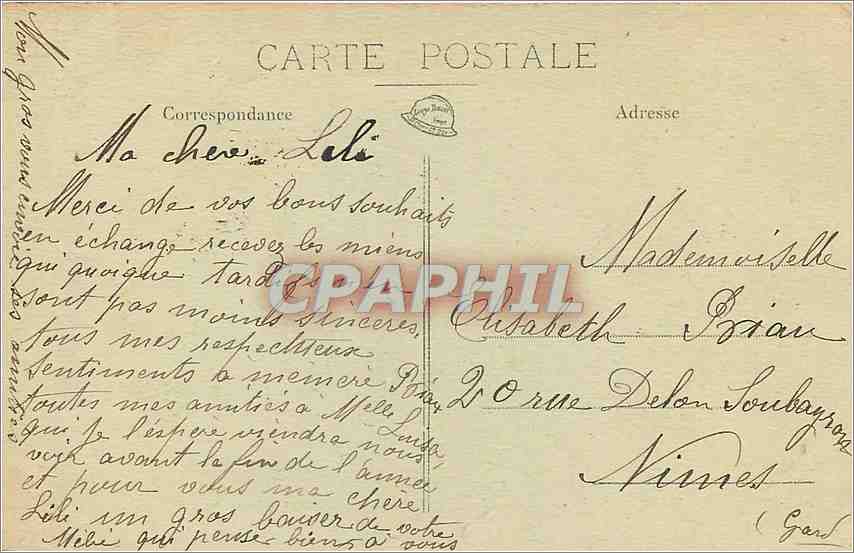 CARTE POSTALE
Correspondance
Adresse
Ma chere Lili
Merci de vos bons souhaits
en échange recever les miens
qui quoique tardifs n'en
sont pas moins sinceres,
tous mes respectueux
sentiments a mémére Brian
toutes mes amitiés à Melle Luisa
qui je l'éspère viendra nous
voir avant la fin de l'année
et pour vous ma chère
Lili un gros baiser de votre
qui pense bien à vous
Mon gros vous envoie ses amitiés
Mademoiselle
Elisabeth Brian
20 rue Delon Soubeyran
Nimes
(Gard
CPAPHIL